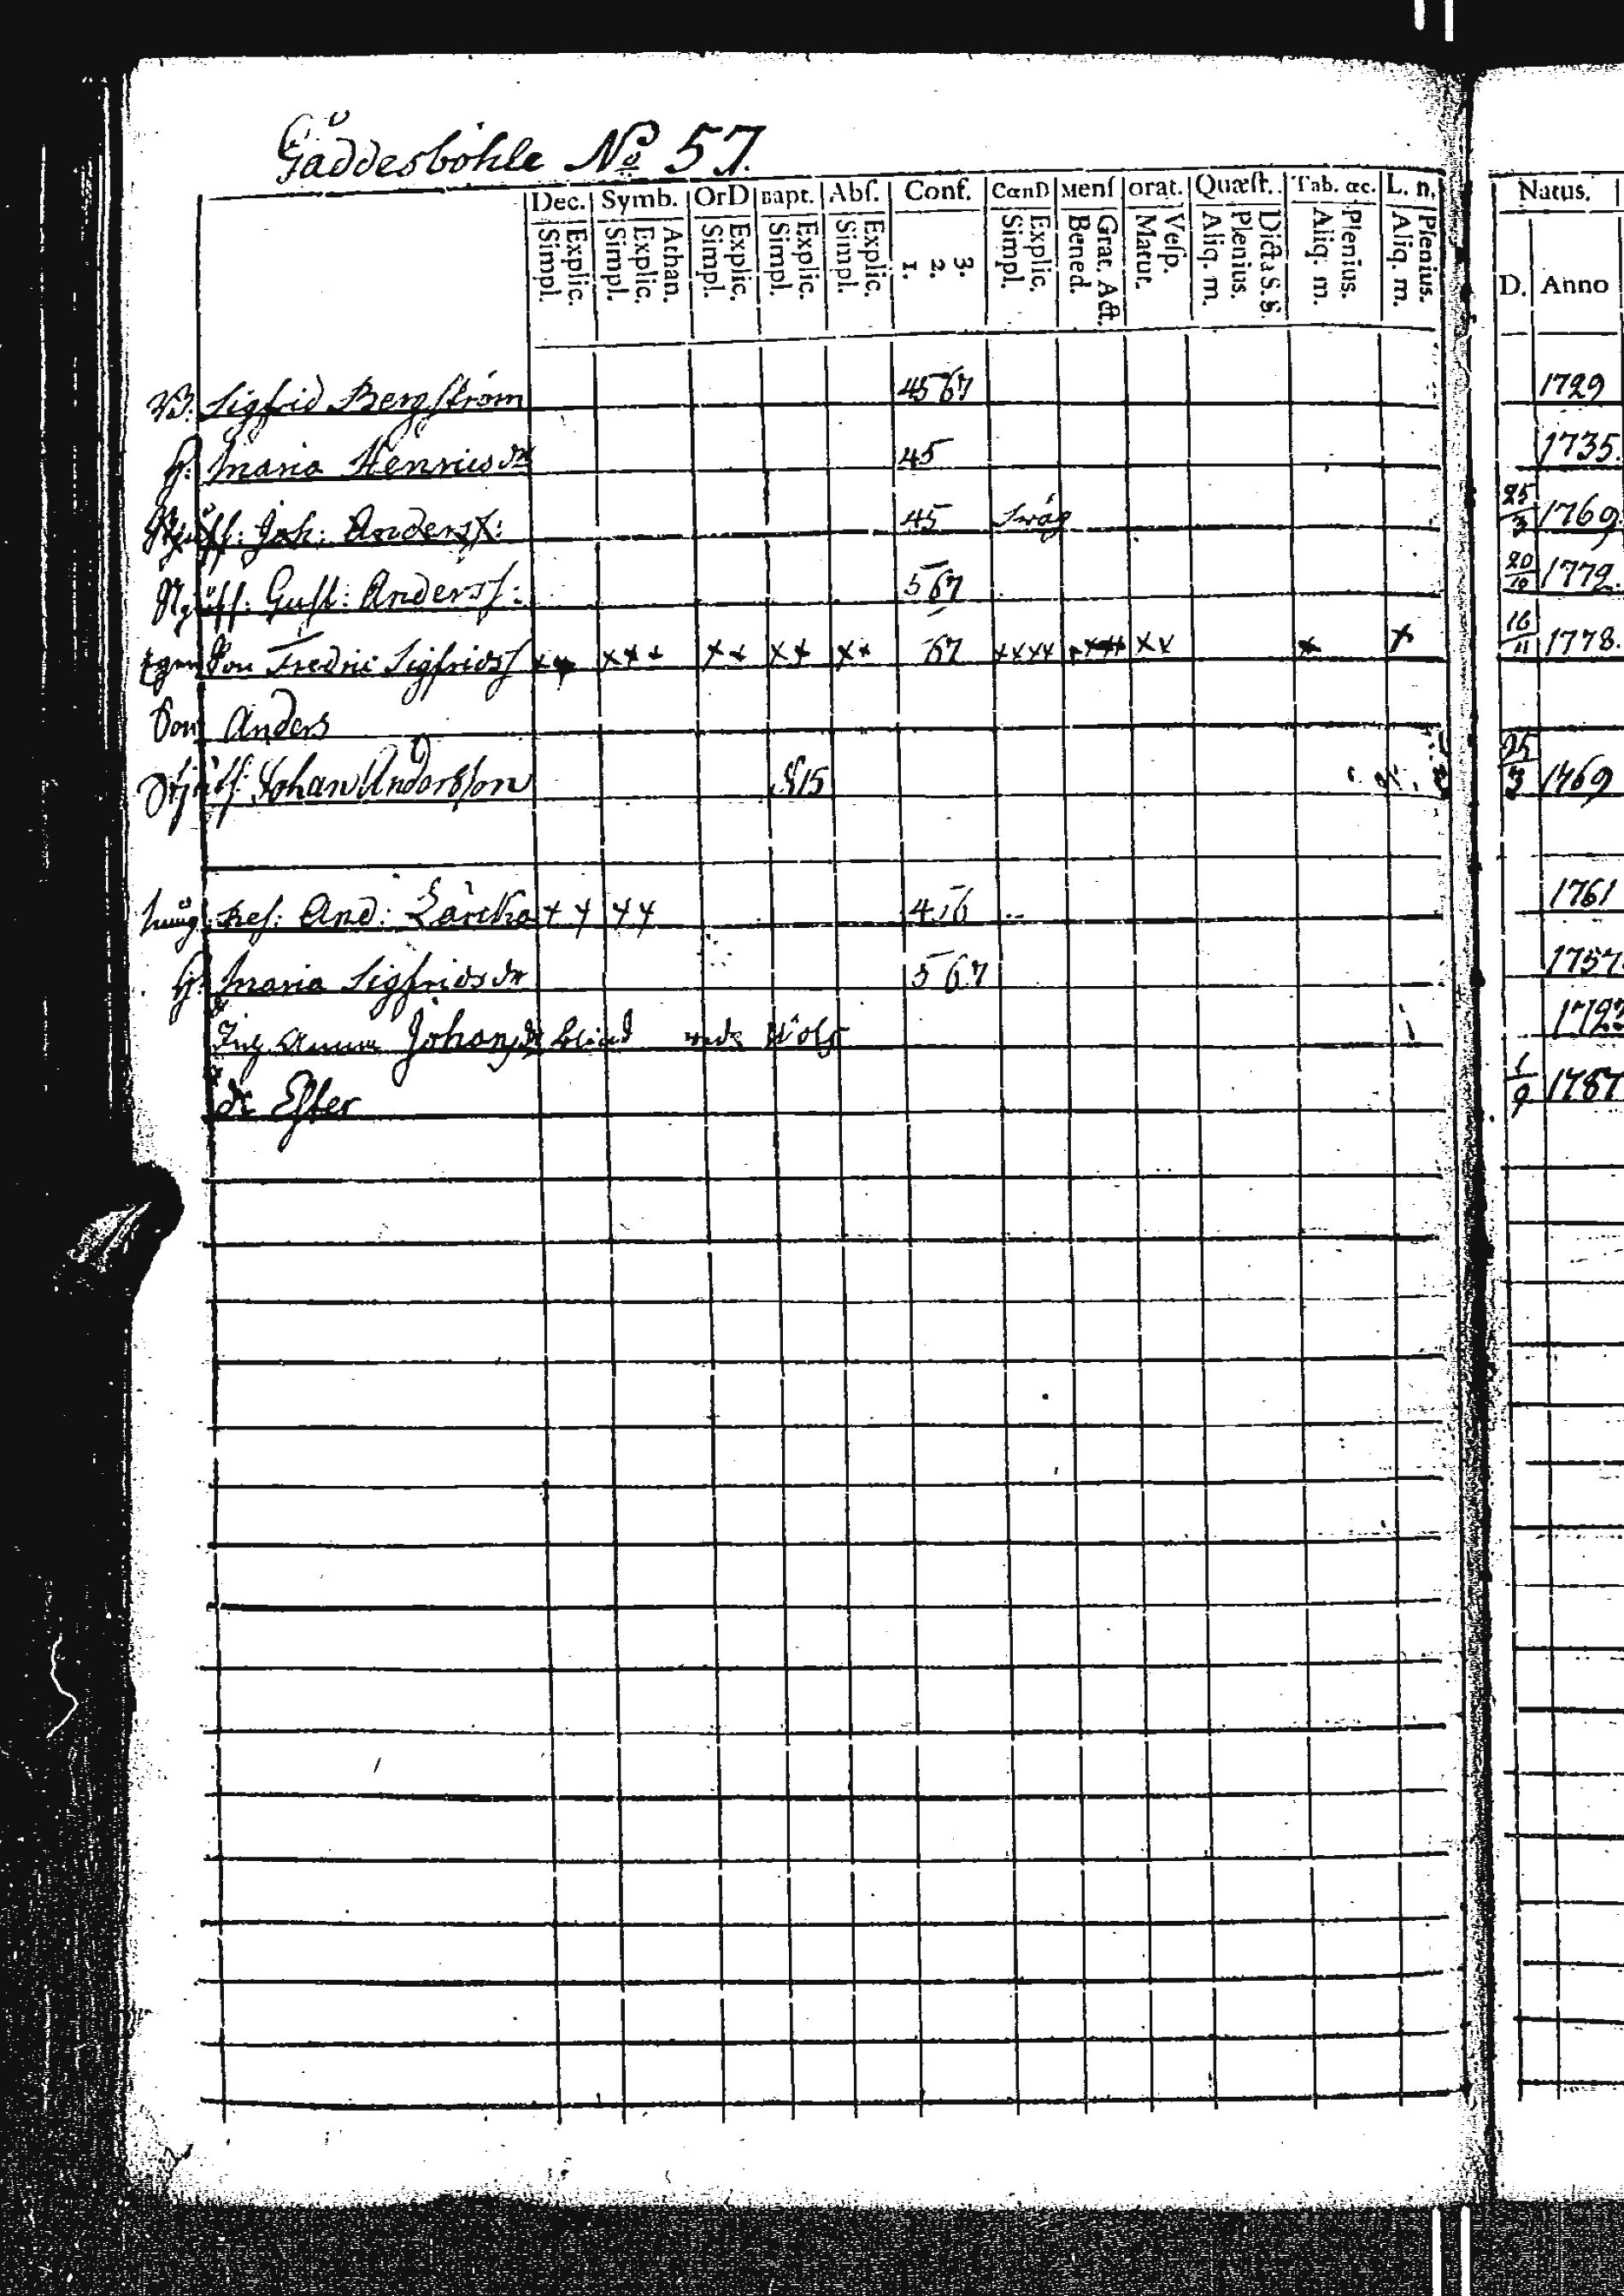 Gäddesböhle No 57.
Dec. Symb. OrD Bapt. Abſ. Conf. CœnD Menſ orat. Quæſt. Tab. œc. L. n. Natus.
Simpl. Explic. Simpl. Explic. Athan. Simpl. Explic. Simpl. Explic. Simpl. Explic. 1. 2. 3. Simpl. Explic. Bened. Grat. Act. Matut. Veſp. Aliq. m. Plenius. Dicta S. S. Aliq. m. Plenius. Aliq. m. Plenius. D. Anno
B. Sigfrid Bergström 4567 1729
H. Maria Henricsdr 45 1735.
Joh: Anderss: 45 25/3 1769
Gust: Anderss: 567 20/10 1772.
Son Fredric Sigfridss xx xxx xx xx xx 67 xxxx xx x x 16/11 1778.
Son Anders
Johan Andersson 25/3 1769
And: Lärcka x x x x 456 1761
H. Maria Sigfridsdr 567 1757.
Johansdr
dr Ester 1/9 1787